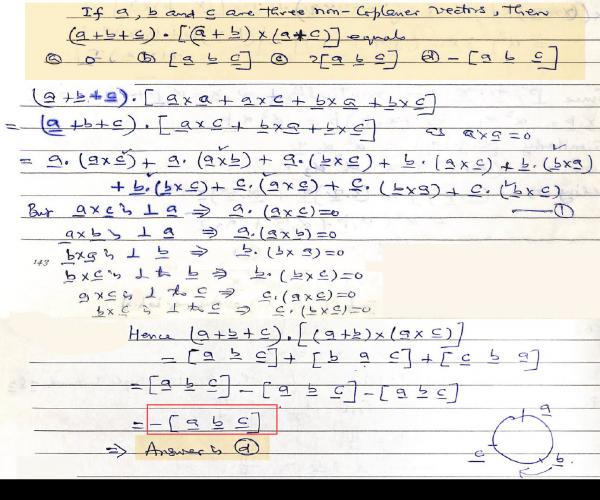 If a, b and c are three non-Coplaner vectors, then
(a+b+c) · [(a+b) × (a+c)] equals
(a) 0 (b) [a b c] (c) 2[a b c] (d) - [a b c]
(a+b+c) · [a×a + a×c + b×a + b×c]
= (a+b+c) · [a×c + b×a + b×c] as a×a = 0
= a·(a×c) + a·(a×b) + a·(b×c) + b·(a×c) + b·(b×a)
+ b·(b×c) + c·(a×c) + c·(b×a) + c·(b×c)
But a×c is ⊥ a ⇒ a·(a×c)=0 ①
a×b is ⊥ a ⇒ a·(a×b)=0
b×a is ⊥ b ⇒ b·(b×a)=0
143
b×c is ⊥ to b ⇒ b·(b×c)=0
a×c is ⊥ to c ⇒ c·(a×c)=0
b×c is ⊥ to c ⇒ c·(b×c)=0
Hence (a+b+c)·[(a+b)×(a×c)]
= [a b c] + [b a c] + [c b a]
= [a b c] - [a b c] - [a b c]
= - [a b c]
⇒ Answer is (d)
a
c
b